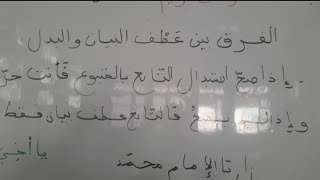 الفرق بين عَطْف البيان والبدل
- إذا صحّ استبدال التابع بالمتبوع فأنت حرّ
وإذا لم يصحُّ فالتابع عطف بيان فقط
يا أخي
الإمام محمّد